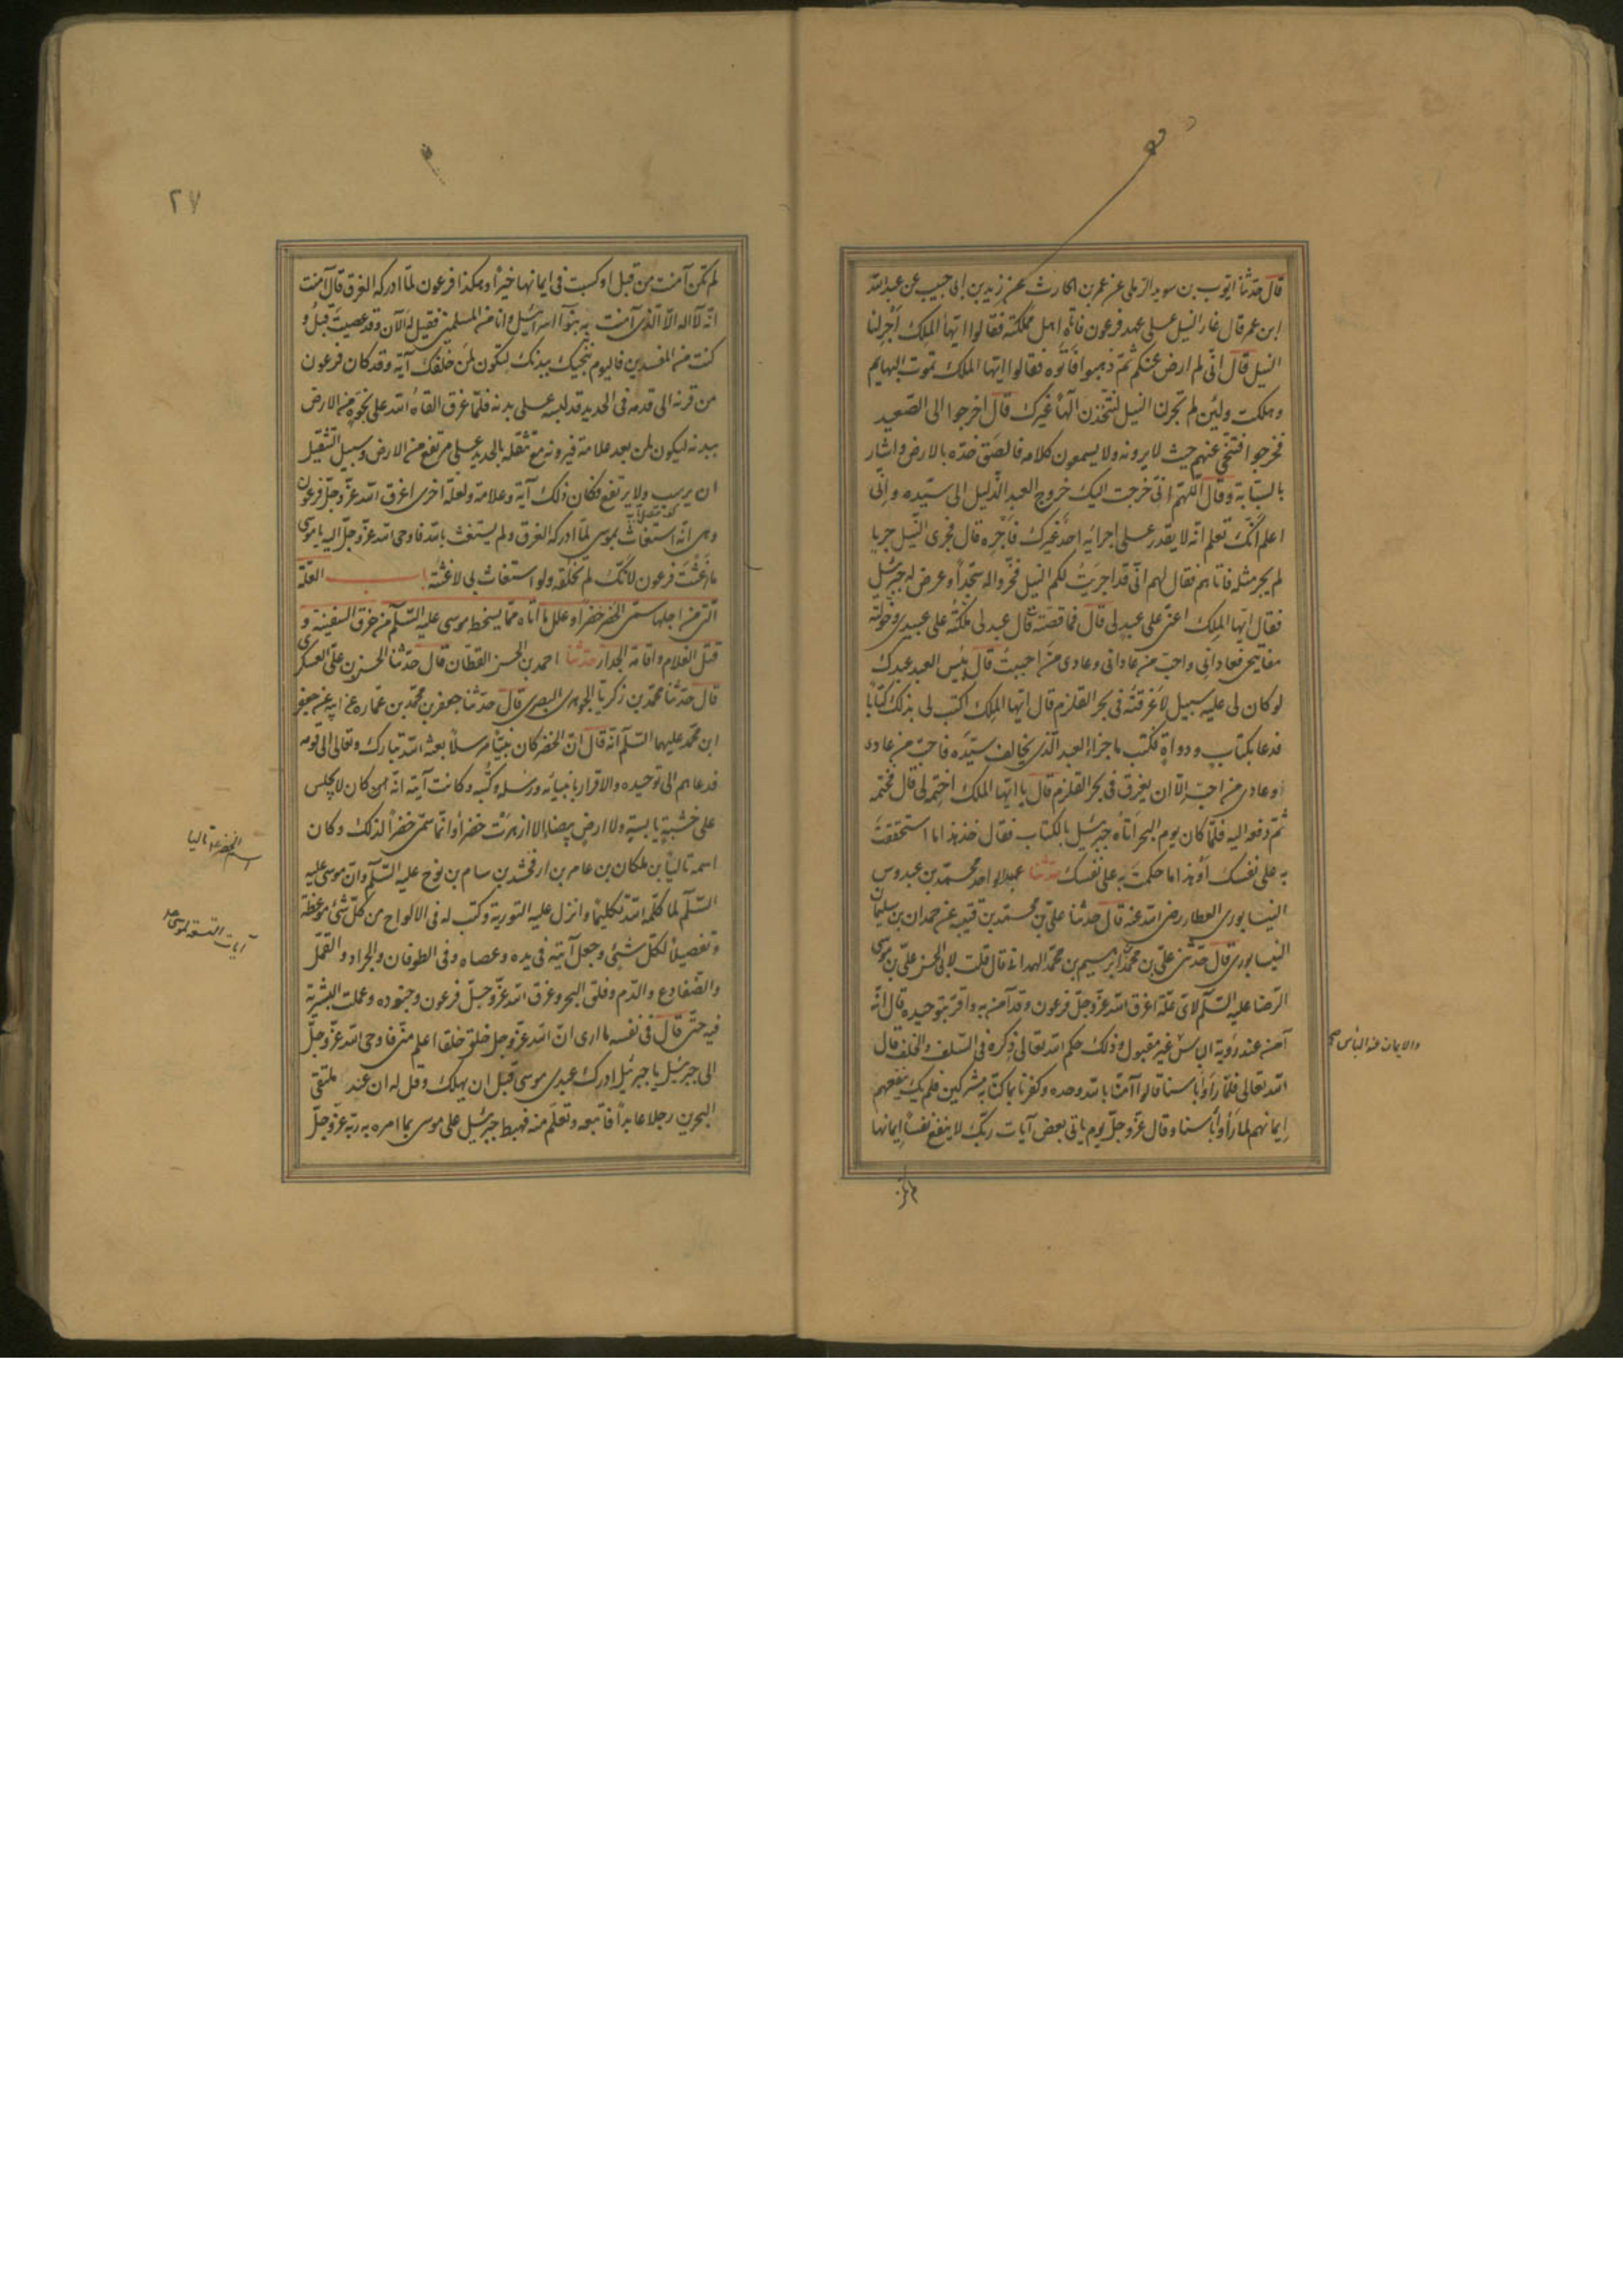 قال حدثنا ايوب بن سويد الرملى عن عمرو بن الحارث عن زيد بن ابى حبيب عن عبد الله
ابن عمر قال غار النيل على عهد فرعون فاتاه اهل مملكته فقالوا ايها الملك اَجْرِ لنا
النيل قال انّى لم ارض عنكم ثمّ ذهبوا فاَتَوْه فقالوا ايّها الملك تموت البهايم
وهلكت ولئِن لم تجر لنا النيل لنتّخذن الٓهاً غيرك قال اخرجوا الى الصّعيد
فخرجوا فتنحّى عنهم حيث لا يرونه ولا يسمعون كلامه فالصَق خدّه بالارض واشار
بالسبّابة وقال اللّهم انّى خرجت اليك خروج العبد الذّليل الى سيّده وانّى
اعلم انّك تعلم انّه لا يقدر على اجرائه احد غيرك فاَجْرِه قال فجرى النّيل جريا
لم يجر مثله فاتاهم فقال لهم انّى قد اجرَيتُ لكم النيل فخرّوا له سُجّداً وعرض له جبرئيل
فقال ايّها الملِك اعنّى على عبدٍ لى قال فما قصّته قال عبد لى ملّكتُه على عبيدى وخوّلته
مفاتيحى فعادانى واحبّ من عادانى وعادى من احببتُ قال بِئس العبد عبدك
لو كان لى عليه سبيل لاَغرقتُه فى بحر القلزم قال ايّها الملك اكتب لى بذلك كتابًا
فدعا بكتابٍ ودواةٍ فكتب ما جزاء العبد الّذى يخالف سيّدَه فاحبّ من عادى
وعادى من احبّ الّا ان يغرق فى بحر القلزم قال يا ايّها الملك اختِمه لى قال فختمه
ثمّ دفعه اليه فلمّا كان يوم البحر اَتاه جبرئيل بالكتاب فقال خذ هذا ما استحققتَ
به على نفسك اَوْ هذا ما حكمتَ به على نفسك حدثنا عبد الواحد محمّد بن عبدوس
النيسابورى العطار رضى الله عنه قال حدثنا على بن محمّد بن قتيبه عن حمدان بن سليمان
النيسابورى قال حدّثنى علىّ بن محمّد ابرهيم بن محمّد الهمدانى قال قلت لابى الحسن علىّ بن موسى
الرّضا عليه السّلم لاىّ علّة اغرق الله عزّ وجلّ فرعون وقد آمن به واقرّ بتوحيده قال انّه
آمن عند رُؤية الباس غير مقبول وذلك حكم الله تعالى ذِكره فى السّلف والخلف قال
والايمان عند الباس صح
الله تعالى فلمّا رَأَوْا باسنا قالوا آمنّا بالله وحده وكفرنا بما كنّا به مشركين فلم يك ينفعهم
اِيمانهم لما رَأَوا بأسنا وقال عزّ وجلّ يوم ياتى بعض آيات ربّك لا ينفع نفساً اِيمانها
لم تكن
٢٧
لم تكن آمنت من قبل او كسبت فى ايمانها خيراً وهكذا فرعون لمّا ادركه الغرق قال آمنت
انّه لآ اله الّا الّذى آمنت به بنوآ اسرآئيل وانا من المسلمين فقيل له آلآن وقد عصيتَ قبلُ و
كنت من المفسدين فاليوم ننجّيك ببدنك لتكون لمَن خلفك آية وقد كان فرعون
من قرنه الى قدمه فى الحديد قد لبسه على بدنه فلمّا غرق القاهُ الله على نجوةٍ من الارض
ببدنه ليكون لمن بعد علامة فيرونه مع تثقّله بالحديد على مرتفع من الارض وسبيل الثّقيل
ان يرسب ولا يرتفع فكان ذلك آية وعلامة ولعلّة اخرى اغرق الله عزّ وجلّ فرعون
وهى انّه استغاث بموسى لمّا ادركه الغرق ولم يستغث بالله فاوحى الله عزّ وجلّ اليه يا موسى
ما اَغَثْتَ فرعون لاَنّك لم تخلُقه ولو استغاث بى لاغثتُه باب العلّة
الّتى من اجلها سمّى الخضر خضراً وعلل ما اتاه ممّا يسخط موسى عليه السّلم من خرق السفينة و
قتل الغلام واقامة الجدار حدثنا احمد بن الحسن القطّان قال حدّثنا الحسن بن علىّ العسكرى
قال حدّثنا محمّد بن زكريّا الجوهرى البصرى قال حدّثنا جعفر بن محمّد بن عماره عن ابيه عن جعفر
ابن محمّد عليهما السّلم انّه قال انّ الخضر كان نبيّاً مرسلًا بعثه الله تبارك وتعالى الى قومه
فدعاهم الى توحيده والاقرار بانبيائه ورسله وكُتُبه وكانت آيته انّه من كان لا يجلس
على خشبةٍ يابسةٍ ولا ارضٍ بيضاء الا ازهرَتْ خضراً وانّما سمّى خضراً لذلك وكان
اسمه تاليا بن ملكان بن عامر بن ارفخشد بن سام بن نوح عليه السّلم وانّ موسى عليه
اسم الخضر هو تاليا
السّلم لما كلّمه الله تكليماً وانزل عليه التورية وكتب له فى الالواح من كلّ شئ موعظة
آيات التسعة لموسى
وتفصيلاً لكلّ شئٍ وجعل آيته فى يده وعصاه وفى الطوفان والجراد والقمّل
والضّفادع والدّم وفلق البحر وغرق الله عزّ وجلّ فرعون وجنوده وعملت البشريّة
فيه حتّى قال فى نفسه ما ارى انّ الله عزّ وجلّ خلق خلقا اعلم منّى فاوحى الله عزّ وجلّ
الى جبرئيل يا جبرئيل ادرك عبدى موسى قبل ان يهلك وقل له ان عند ملتقى
البحرين رجلا عابداً فاتّبعه وتعلّم منه فهبط جبرئيل على موسى بما امره به ربّه عزّ وجلّ